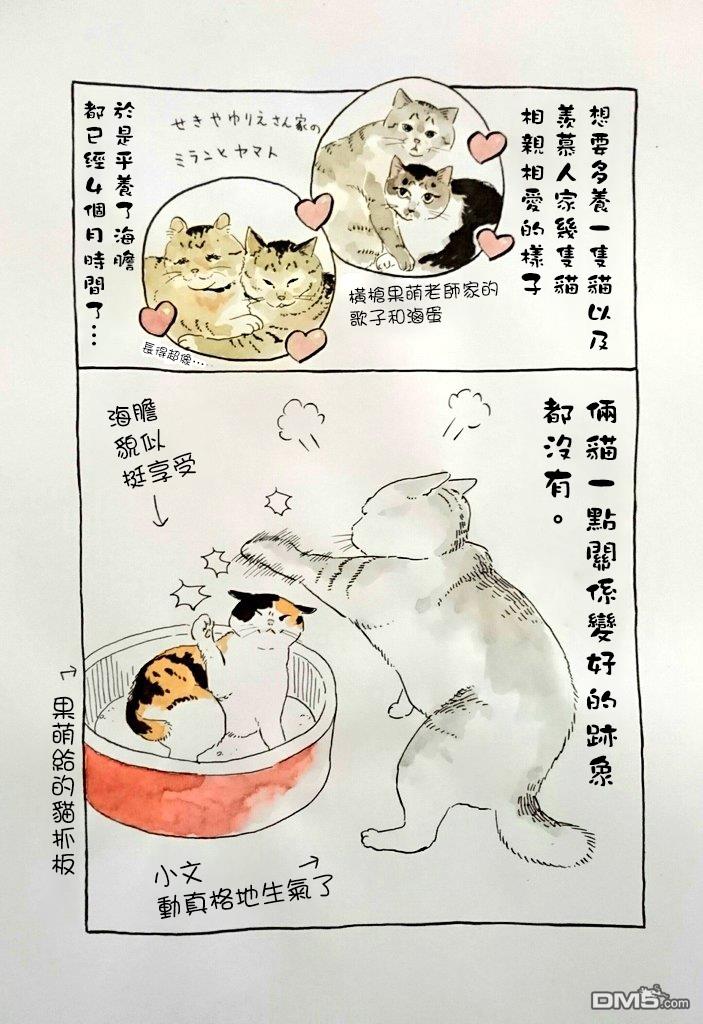 想要多養一隻貓以及
羨慕人家幾隻貓
相親相愛的樣子
橫槍果萌老師家的
歌子和滷蛋
せきやゆりえさん家の
ミランとヤマト
長得超像……
於是乎養了海膽
都已經4個月時間了…
倆貓一點關係變好的跡象
都沒有。
海膽
貌似
挺享受
果萌給的貓抓板
小文
動真格地生氣了
DM5.com